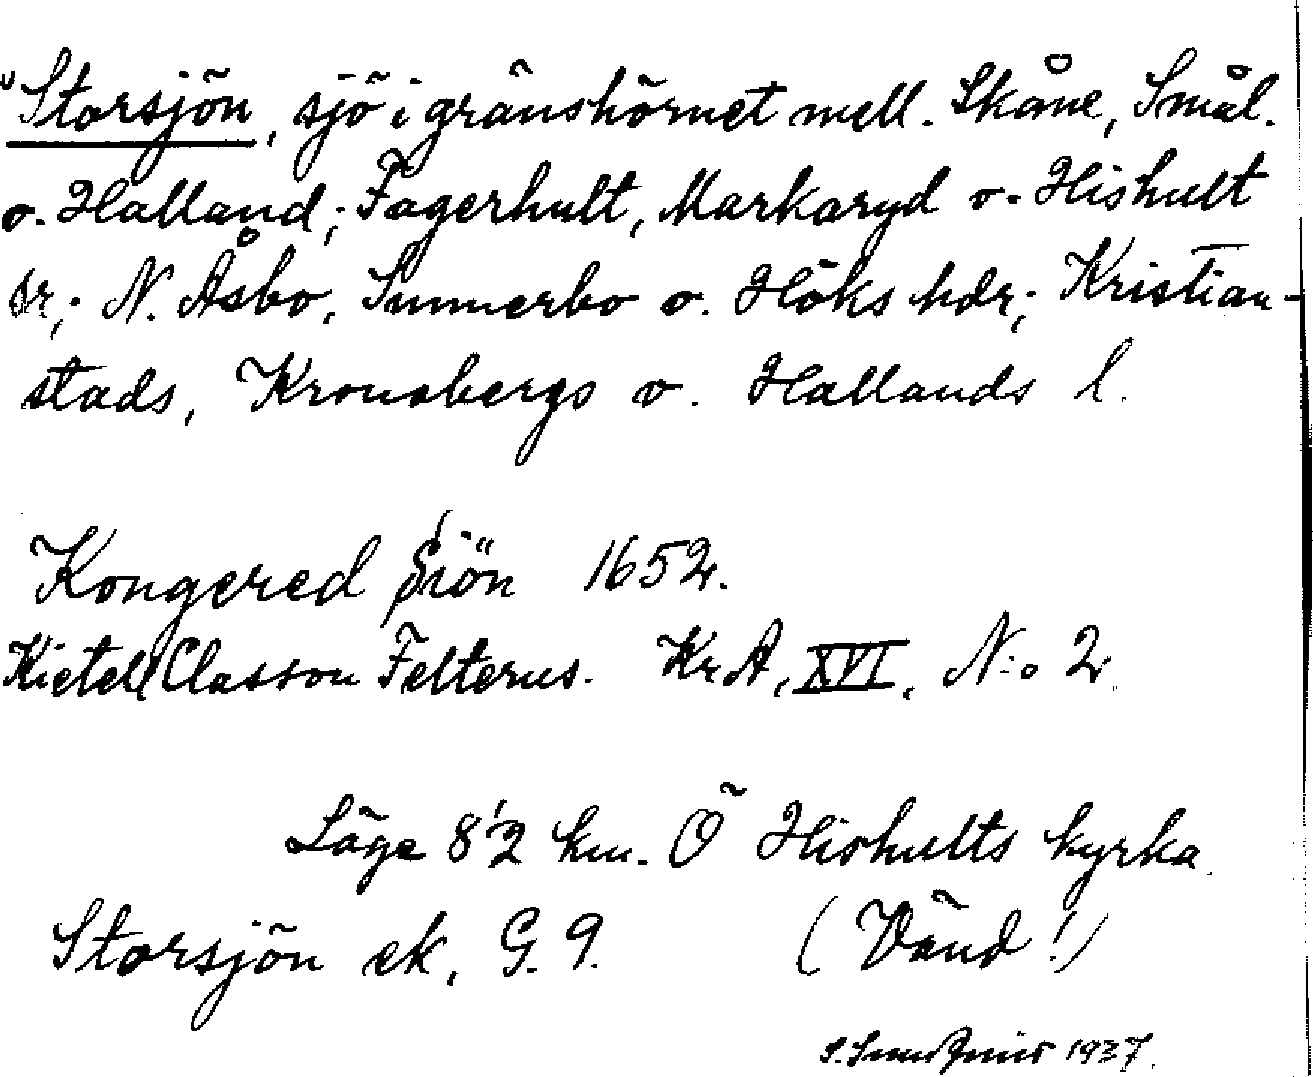 Storsjön, sjö i gränshörnet mell. Skåne, Smål.
o. Halland; Fagerhult, Markaryd o. Hishult
sr; N. Åsbo, Sunnerbo o. Höks hdr; Kristian-
stads, Kronobergs o. Hallands l.
Kongered Siön 1652.
Kietell Classon Felterus. KrA, XVI, N:o 2.
Läge 8'2 km. Ö Hishults kyrka.
Storsjön ek, G. 9. (Vänd!)
1937.